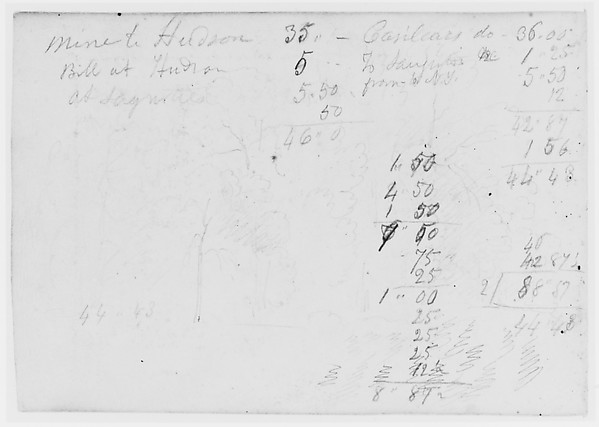 Mine to Hudson 35"
Bill at Hudson 5
at 5"50
50
46"0
Casilears do - 36"00
To 1"25
from N.Y. 5"50
12
42"87
1 56
44"43
1"50
4 50
1 50
50
75
25
1"00
25
25
25
12½
8"87½
42 87½
2 88 87
44 43
44 43